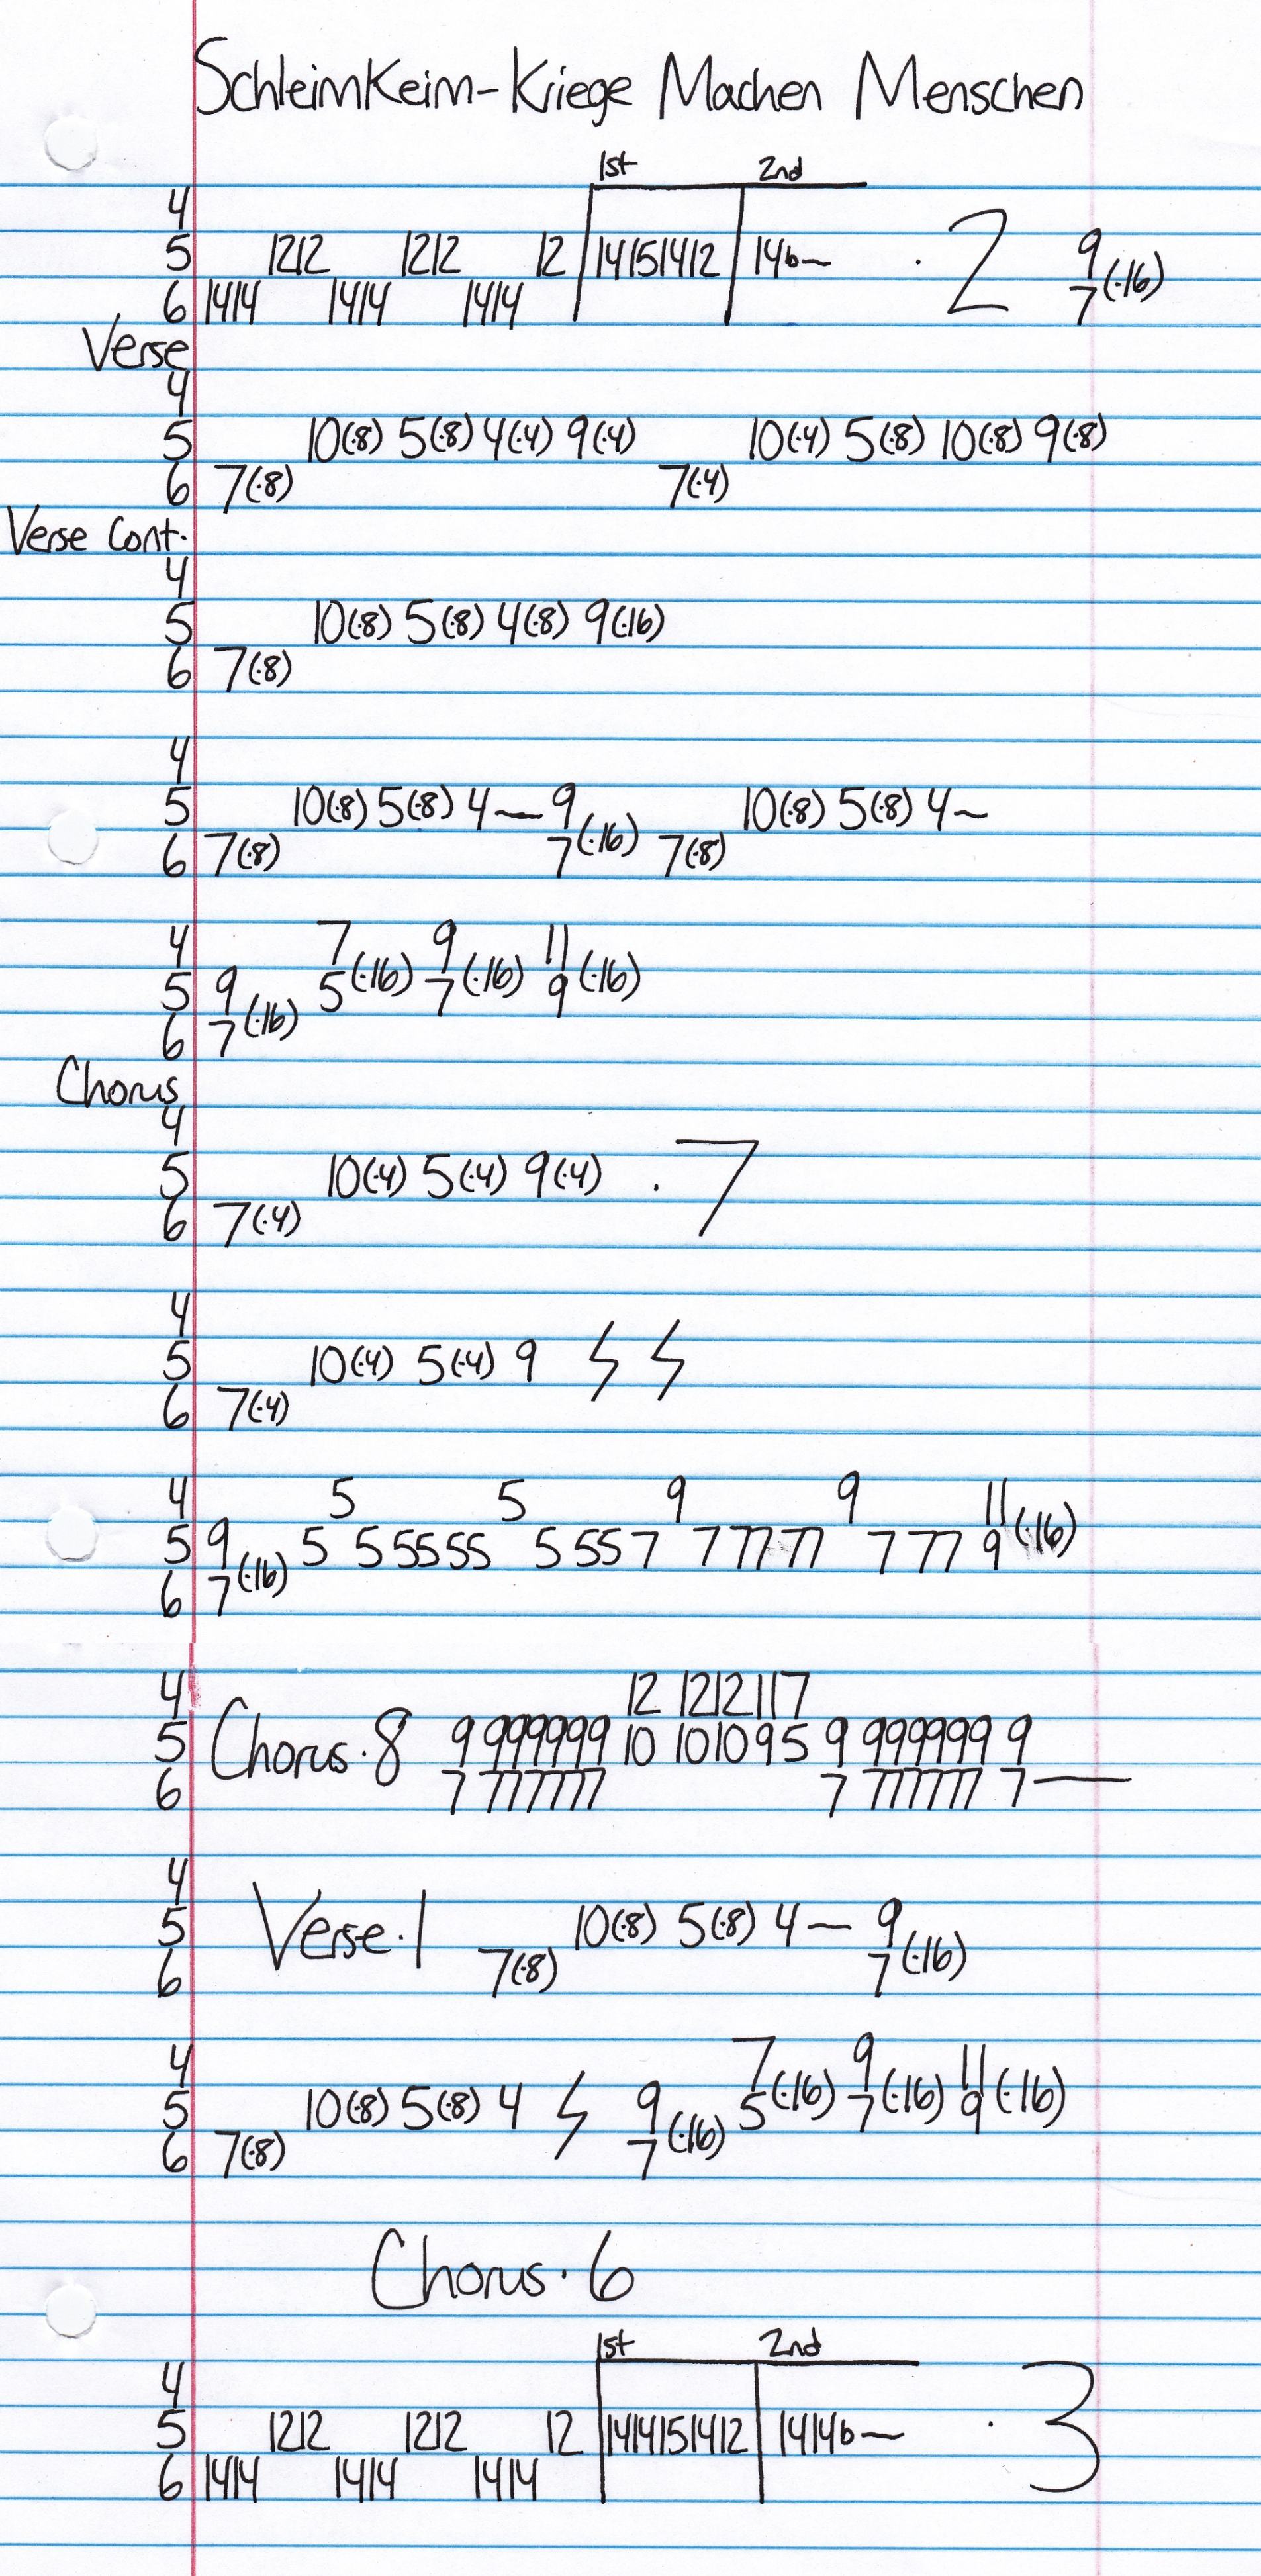 Schleimkeim-Kriege Machen Menschen
1st 2nd
4
5 1212 1212 12 14151412 14b~ · 2 9
6 1414 1414 1414 7(·16)
Verse
4
5 10(·8) 5(·8) 4(·4) 9(·4) 10(·4) 5(·8) 10(·8) 9(·8)
6 7(·8) 7(·4)
Verse Cont.
4
5 10(·8) 5(·8) 4(·8) 9(·16)
6 7(·8)
4
5 10(·8) 5(·8) 4— 9 10(·8) 5(·8) 4~
6 7(·8) 7(·16) 7(·8)
4 7 9 11
5 9 5(·16) 7(·16) 9(·16)
6 7(·16)
Chorus
4
5 10(·4) 5(·4) 9(·4) · 7
6 7(·4)
4
5 10(·4) 5(·4) 9
6 7(·4)
4 5 5 9 9 11
5 9 5 5 5555 5 5 5 5 7 7 7777 7 77 9(·16)
6 7(·16)
4 12 12 12 11 7
5 Chorus·8 9 999999 10 10 10 9 5 9 999999 9
6 7 777777 7 777777 7—
4
5 Verse·1 10(·8) 5(·8) 4— 9
6 7(·8) 7(·16)
4 7 9 11
5 10(·8) 5(·8) 4 9 5(·16) 7(·16) 9(·16)
6 7(·8) 7(·16)
Chorus·6
1st 2nd
4
5 1212 1212 12 1414151412 1414b~ · 3
6 1414 1414 1414